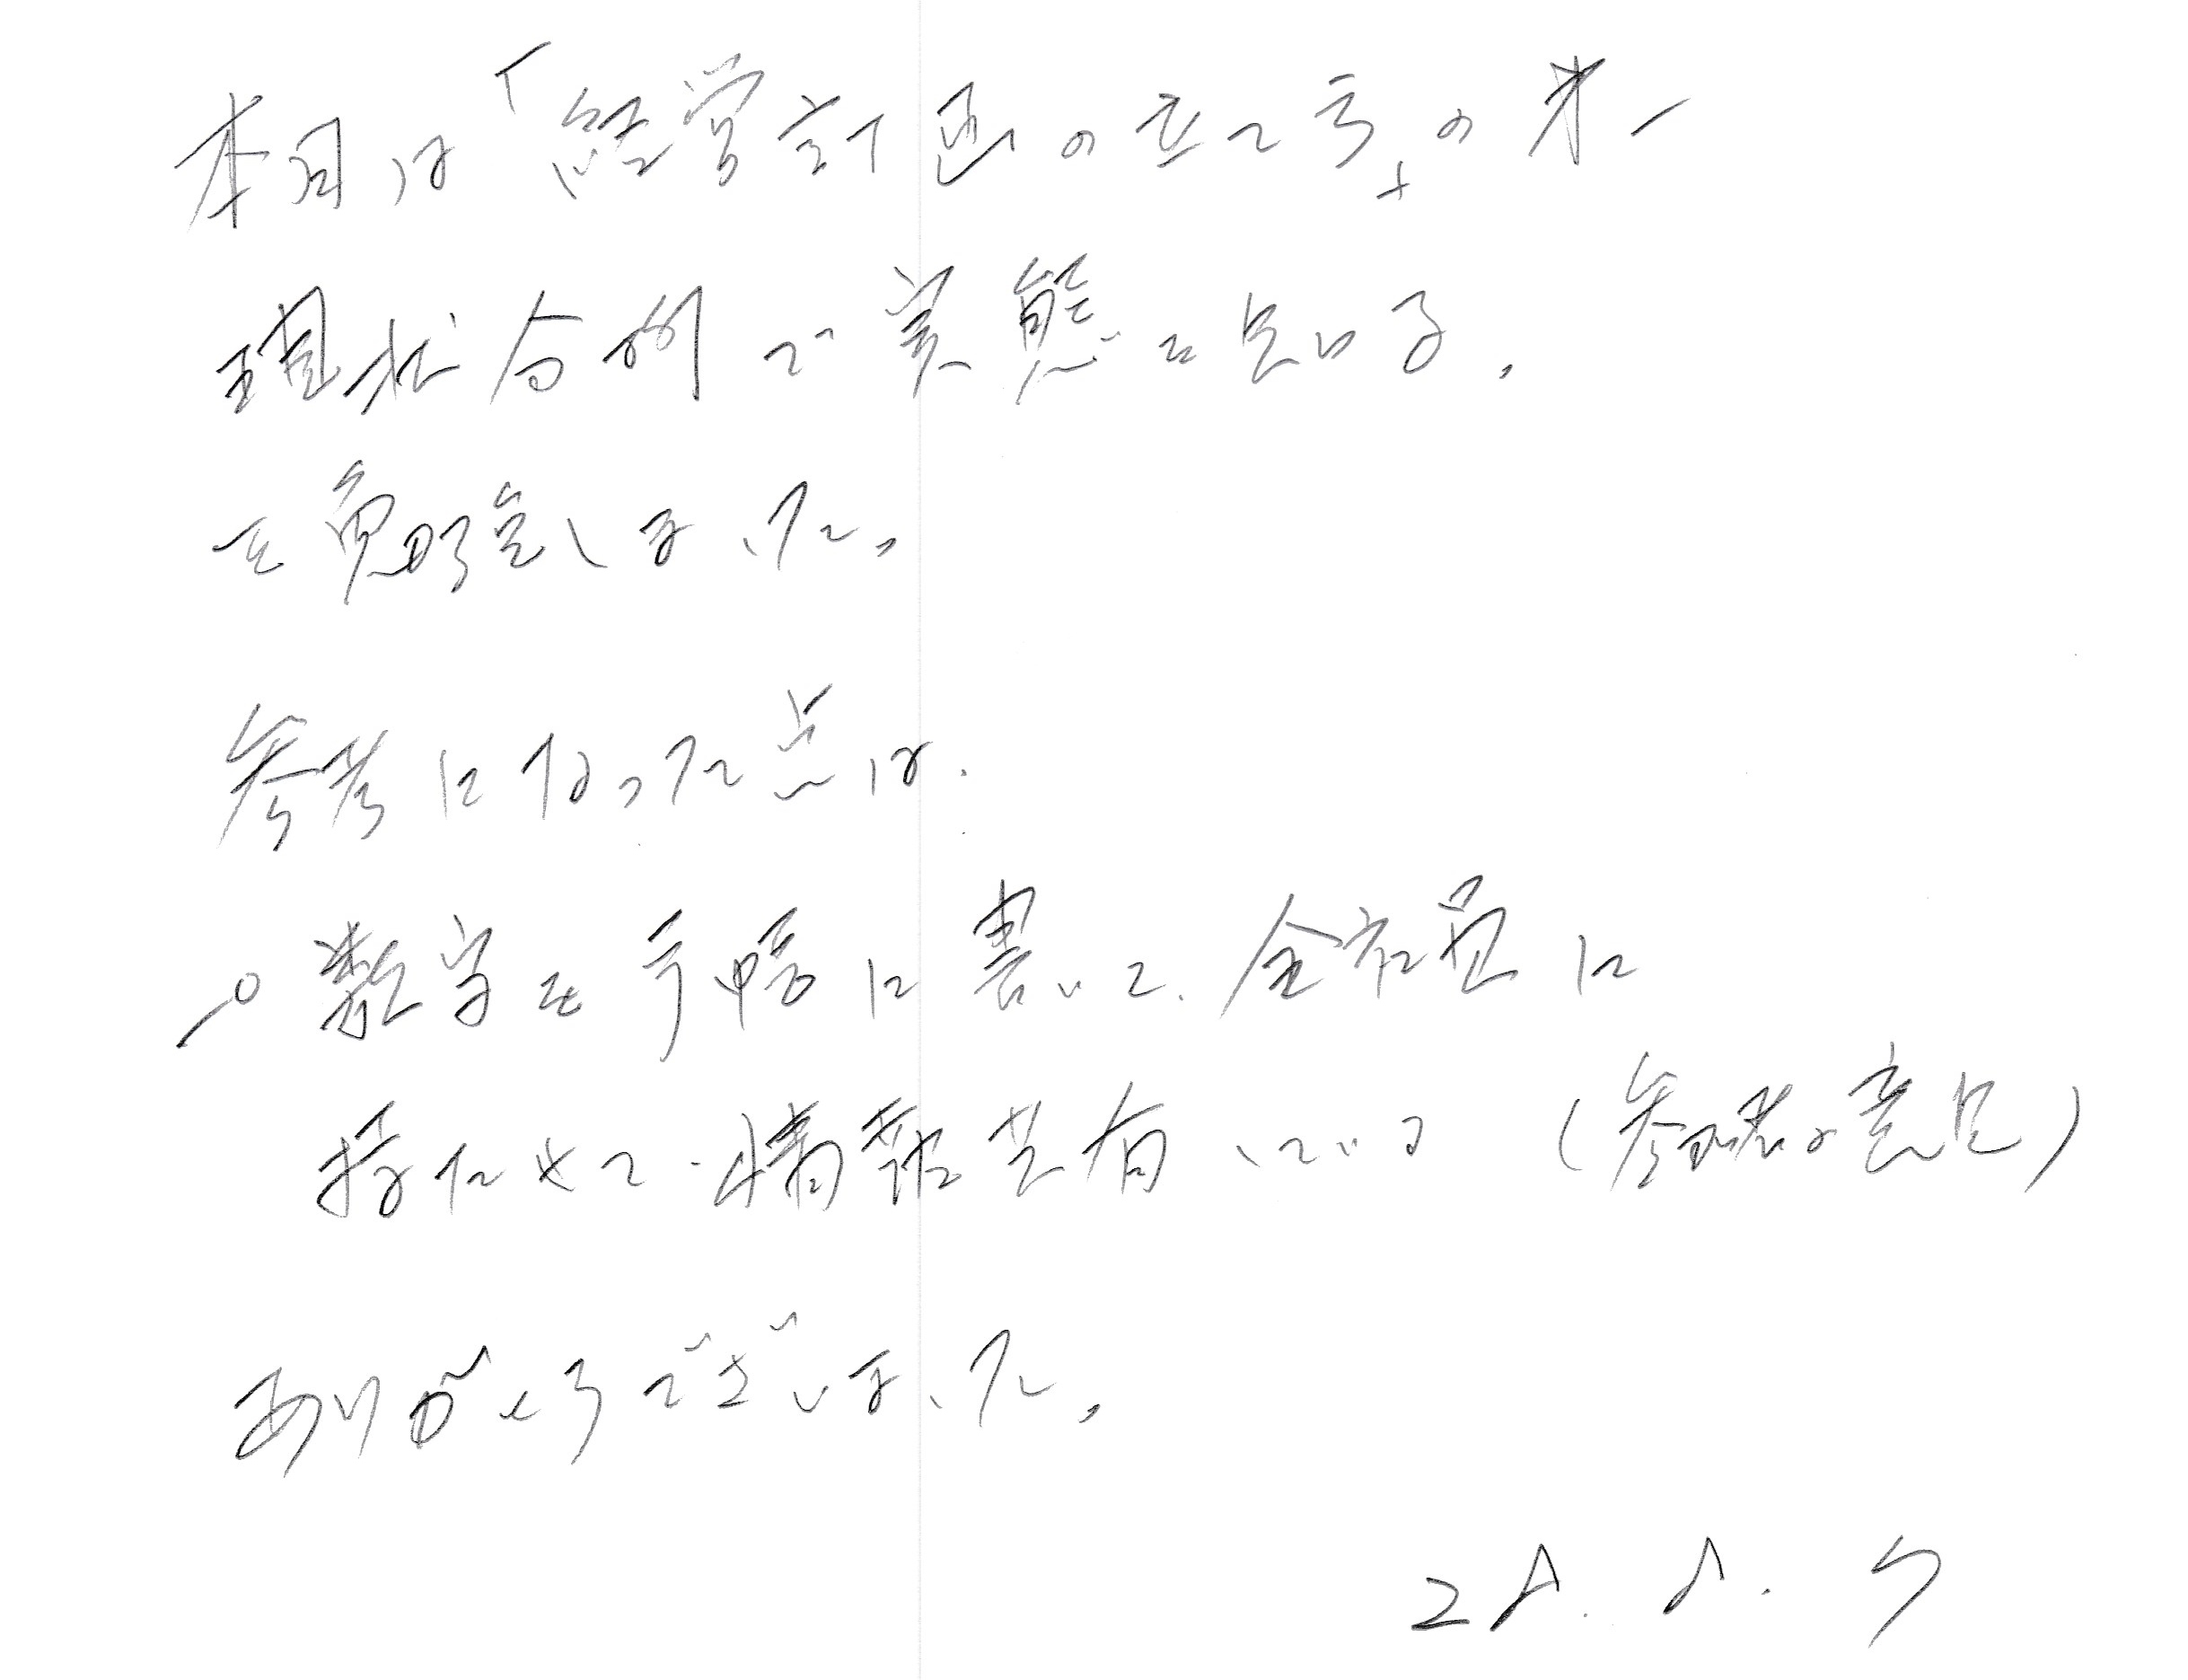 本日は「経営計画の立て方」の第一
現状分析で実態を知る、
を勉強しました。
参考になった点は、
○数字を手帳に書いて、全社員に
持たせて、情報共有している(参加者の意見)
ありがとうございました。
28. 8. 9